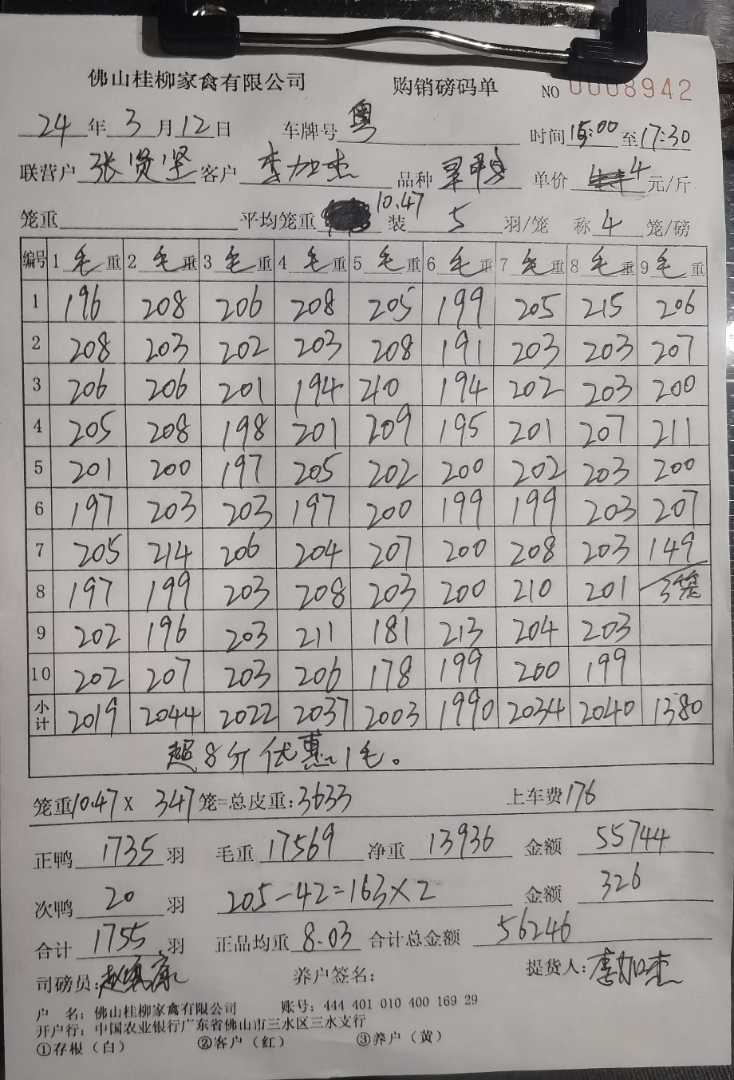 佛山桂柳家禽有限公司 购销磅码单 NO 0008942
24年3月12日 车牌号 粤 时间15:00至17:30
联营户 张贤坚 客户 李加杰 品种 单价 4 元/斤
笼重 平均笼重 10.47 装 5 羽/笼 称 4 笼/磅
编号 1 毛 重 2 毛 重 3 毛 重 4 毛 重 5 毛 重 6 毛 重 7 毛 重 8 毛 重 9 毛 重
1 196 208 206 208 205 199 205 215 206
2 208 203 202 203 208 191 203 203 207
3 206 206 201 194 210 194 202 203 200
4 205 208 198 201 209 195 201 207 211
5 201 200 197 205 202 200 202 203 200
6 197 203 203 197 200 199 199 203 207
7 205 214 206 204 207 200 208 203 149
8 197 199 203 208 203 200 210 201 3笼
9 202 196 203 211 181 213 204 203
10 202 207 203 206 178 199 200 199
小计 2019 2044 2022 2037 2003 1990 2034 2040 1380
超8分优惠1毛。
笼重10.47 X 347笼=总皮重:3633 上车费176
正鸭 1735 羽 毛重 17569 净重 13936 金额 55744
次鸭 20 羽 205-42=163×2 金额 326
合计 1755 羽 正品均重 8.03 合计总金额 56246
司磅员: 养户签名: 提货人:李加杰
户 名:佛山桂柳家禽有限公司 账号:444 401 010 400 169 29
开户行:中国农业银行广东省佛山市三水区三水支行
①存根(白) ②客户(红) ③养户(黄)